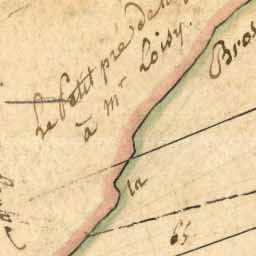 le Petit pré de
à Mr Loisy.
Bros
la
65.